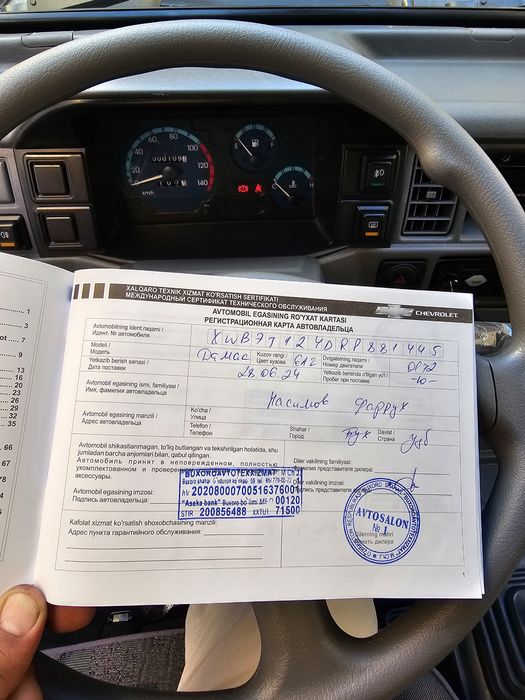 40
60
80
100
20
120
140
km/h
000109
F
H
1
7
9
13
16
20
26
29
32
35
66
67
XALQARO TEXNIK XIZMAT KO'RSATISH SERTIFIKATI
МЕЖДУНАРОДНЫЙ СЕРТИФИКАТ ТЕХНИЧЕСКОГО ОБСЛУЖИВАНИЯ
CHEVROLET
AVTOMOBIL EGASINING RO'YXAT KARTASI
РЕГИСТРАЦИОННАЯ КАРТА АВТОВЛАДЕЛЬЦА
Avtomobilning ident.raqami /
Идент. № автомобиля
XWB7T12YDRP881445
Modeli /
Модель
Дамас
Kuzov rangi /
Цвет кузова
GAZ
Dvigatelning raqami /
Номер двигателя
Yetkazib berish sanasi /
Дата поставки
28.06.24
Yetkazib berishda o'tilgan yo'l /
Пробег при поставке
-10-
Avtomobil egasining ismi, familiyasi /
Имя, фамилия автовладельца
Насимов Фаррух
Avtomobil egasining manzili /
Адрес автовладельца
Ko'cha /
Улица
Telefon /
Телефон
Shahar /
Город
Бух
Davlat /
Страна
Узб
Avtomobil shikastlanmagan, to'liq butlangan va tekshirilgan holatida, shu
jumladan barcha anjomlari bilan, qabul qilingan.
Автомобиль принят в неповрежденном, полностью
укомплектованном и проверенном
аксессуары.
Diler vakilining familiyasi:
Фамилия представителя дилера:
"BUXOROAVTOTEXXIZMAT" MCHJ
Buxoro shahar
20208000700516376001
"Asaka bank" Buxoro bo'limi 00120
STIR 200856488 XXTUT 71500
Avtomobil egasining imzosi:
Подпись автовладельца:
Diler vakilining imzosi:
представителя дилера:
AVTOSALON
№ 1
Kafolat xizmat ko'rsatish shoxobchasining manzili:
Адрес пункта гарантийного обслуживания:
1